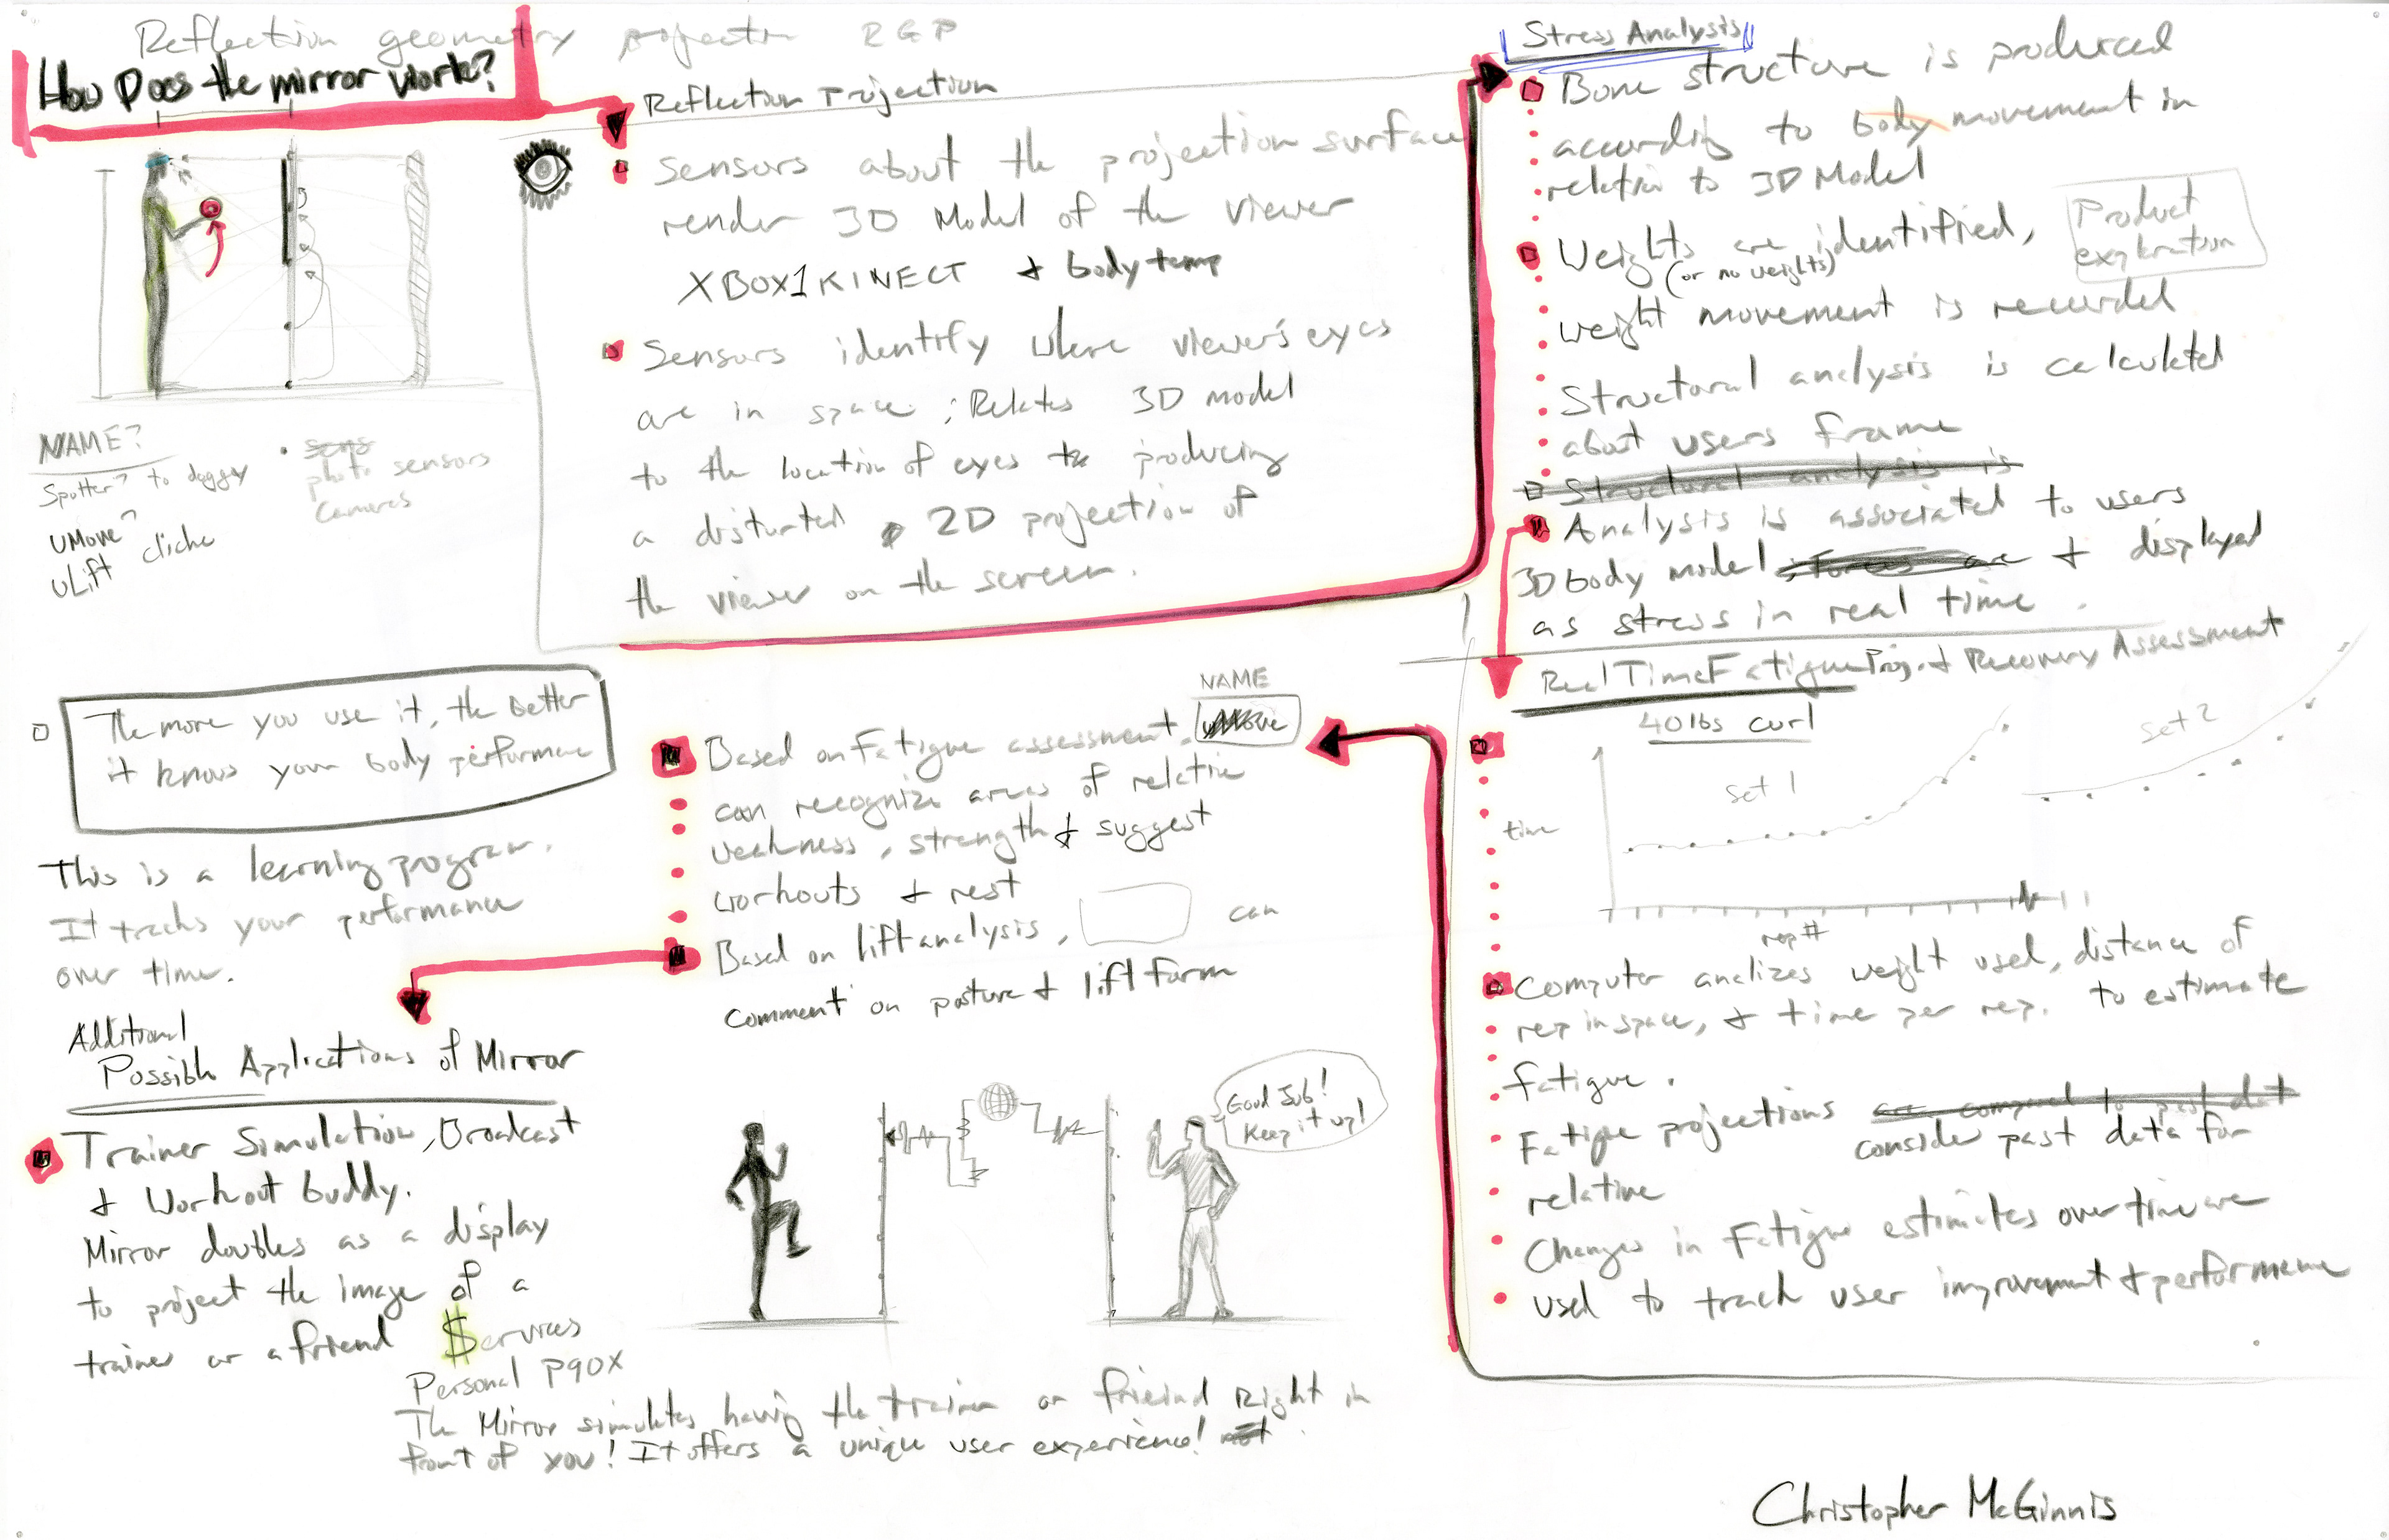 Reflection geometry projection RGP
How Does the mirror work?
Reflection Projection
Sensors about the projection surface
render 3D Model of the viewer
XBOX1 KINECT + body temp
Sensors identify where viewer's eyes
are in space ; Relates 3D model
to the location of eyes producing
a disturted 2D projection of
the viewer on the screen.
NAME?
Spotter? to doggy
uMove?
uLift cliche
photo sensors
cameras
Stress Analysis
Bone structure is produced
according to body movement in
relation to 3D Model
Weights are identified,
(or no weights)
weight movement is recorded
Structural analysis is calculated
about users frame
Structural analysis is
Analysis is associated to users
3D body model + displayed
as stress in real time.
Product
exploration
Real Time Fatigue Proj. + Recovery Assessment
40lbs curl
set 1
set 2
time
rep #
Computer analizes weight used, distance of
rep in space, + time per rep. to estimate
fatigue.
Fatigue projections are compared to past dat
consider past data for
relative
Changes in Fatigue estimates over time are
used to track user improvement + performance
NAME
uMove
Based on Fatigue assessment,
can recognize areas of relative
weakness, strength + suggest
workouts + rest
Based on lift analysis, can
comment on posture + lift form
The more you use it, the better
it knows your body performance
This is a learning program.
It tracks your performance
over time.
Additional
Possible Applications of Mirror
Trainer Simulation, Broadcast
+ Workout buddy.
Mirror doubles as a display
to project the image of a
trainer or a friend
$ervices
Personal P90X
The Mirror simulates having the trainer or friend Right in
front of you! It offers a unique user experience!
Good Job!
Keep it up!
Christopher McGinnis